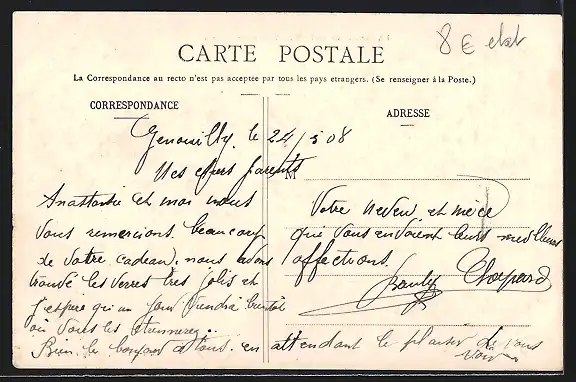 8 € etat
CARTE POSTALE
La Correspondance au recto n'est pas acceptee par tous les pays etrangers. (Se renseigner à la Poste.)
CORRESPONDANCE
ADRESSE
Genouilly, le 24/5 08
Mes chers parents
M
Anasthasie et moi nous
vous remercions beaucoup
de votre cadeau. nous avons
trouvé les verres tres jolis et
j'espere qu'un jour viendra bientôt
où vous les etrennerez.
Bien le bonjour a tous. en attendant le plaisir de vous
voir
Votre neveu et nièce
qui vous envoient leurs meilleures
affections.
Chopard